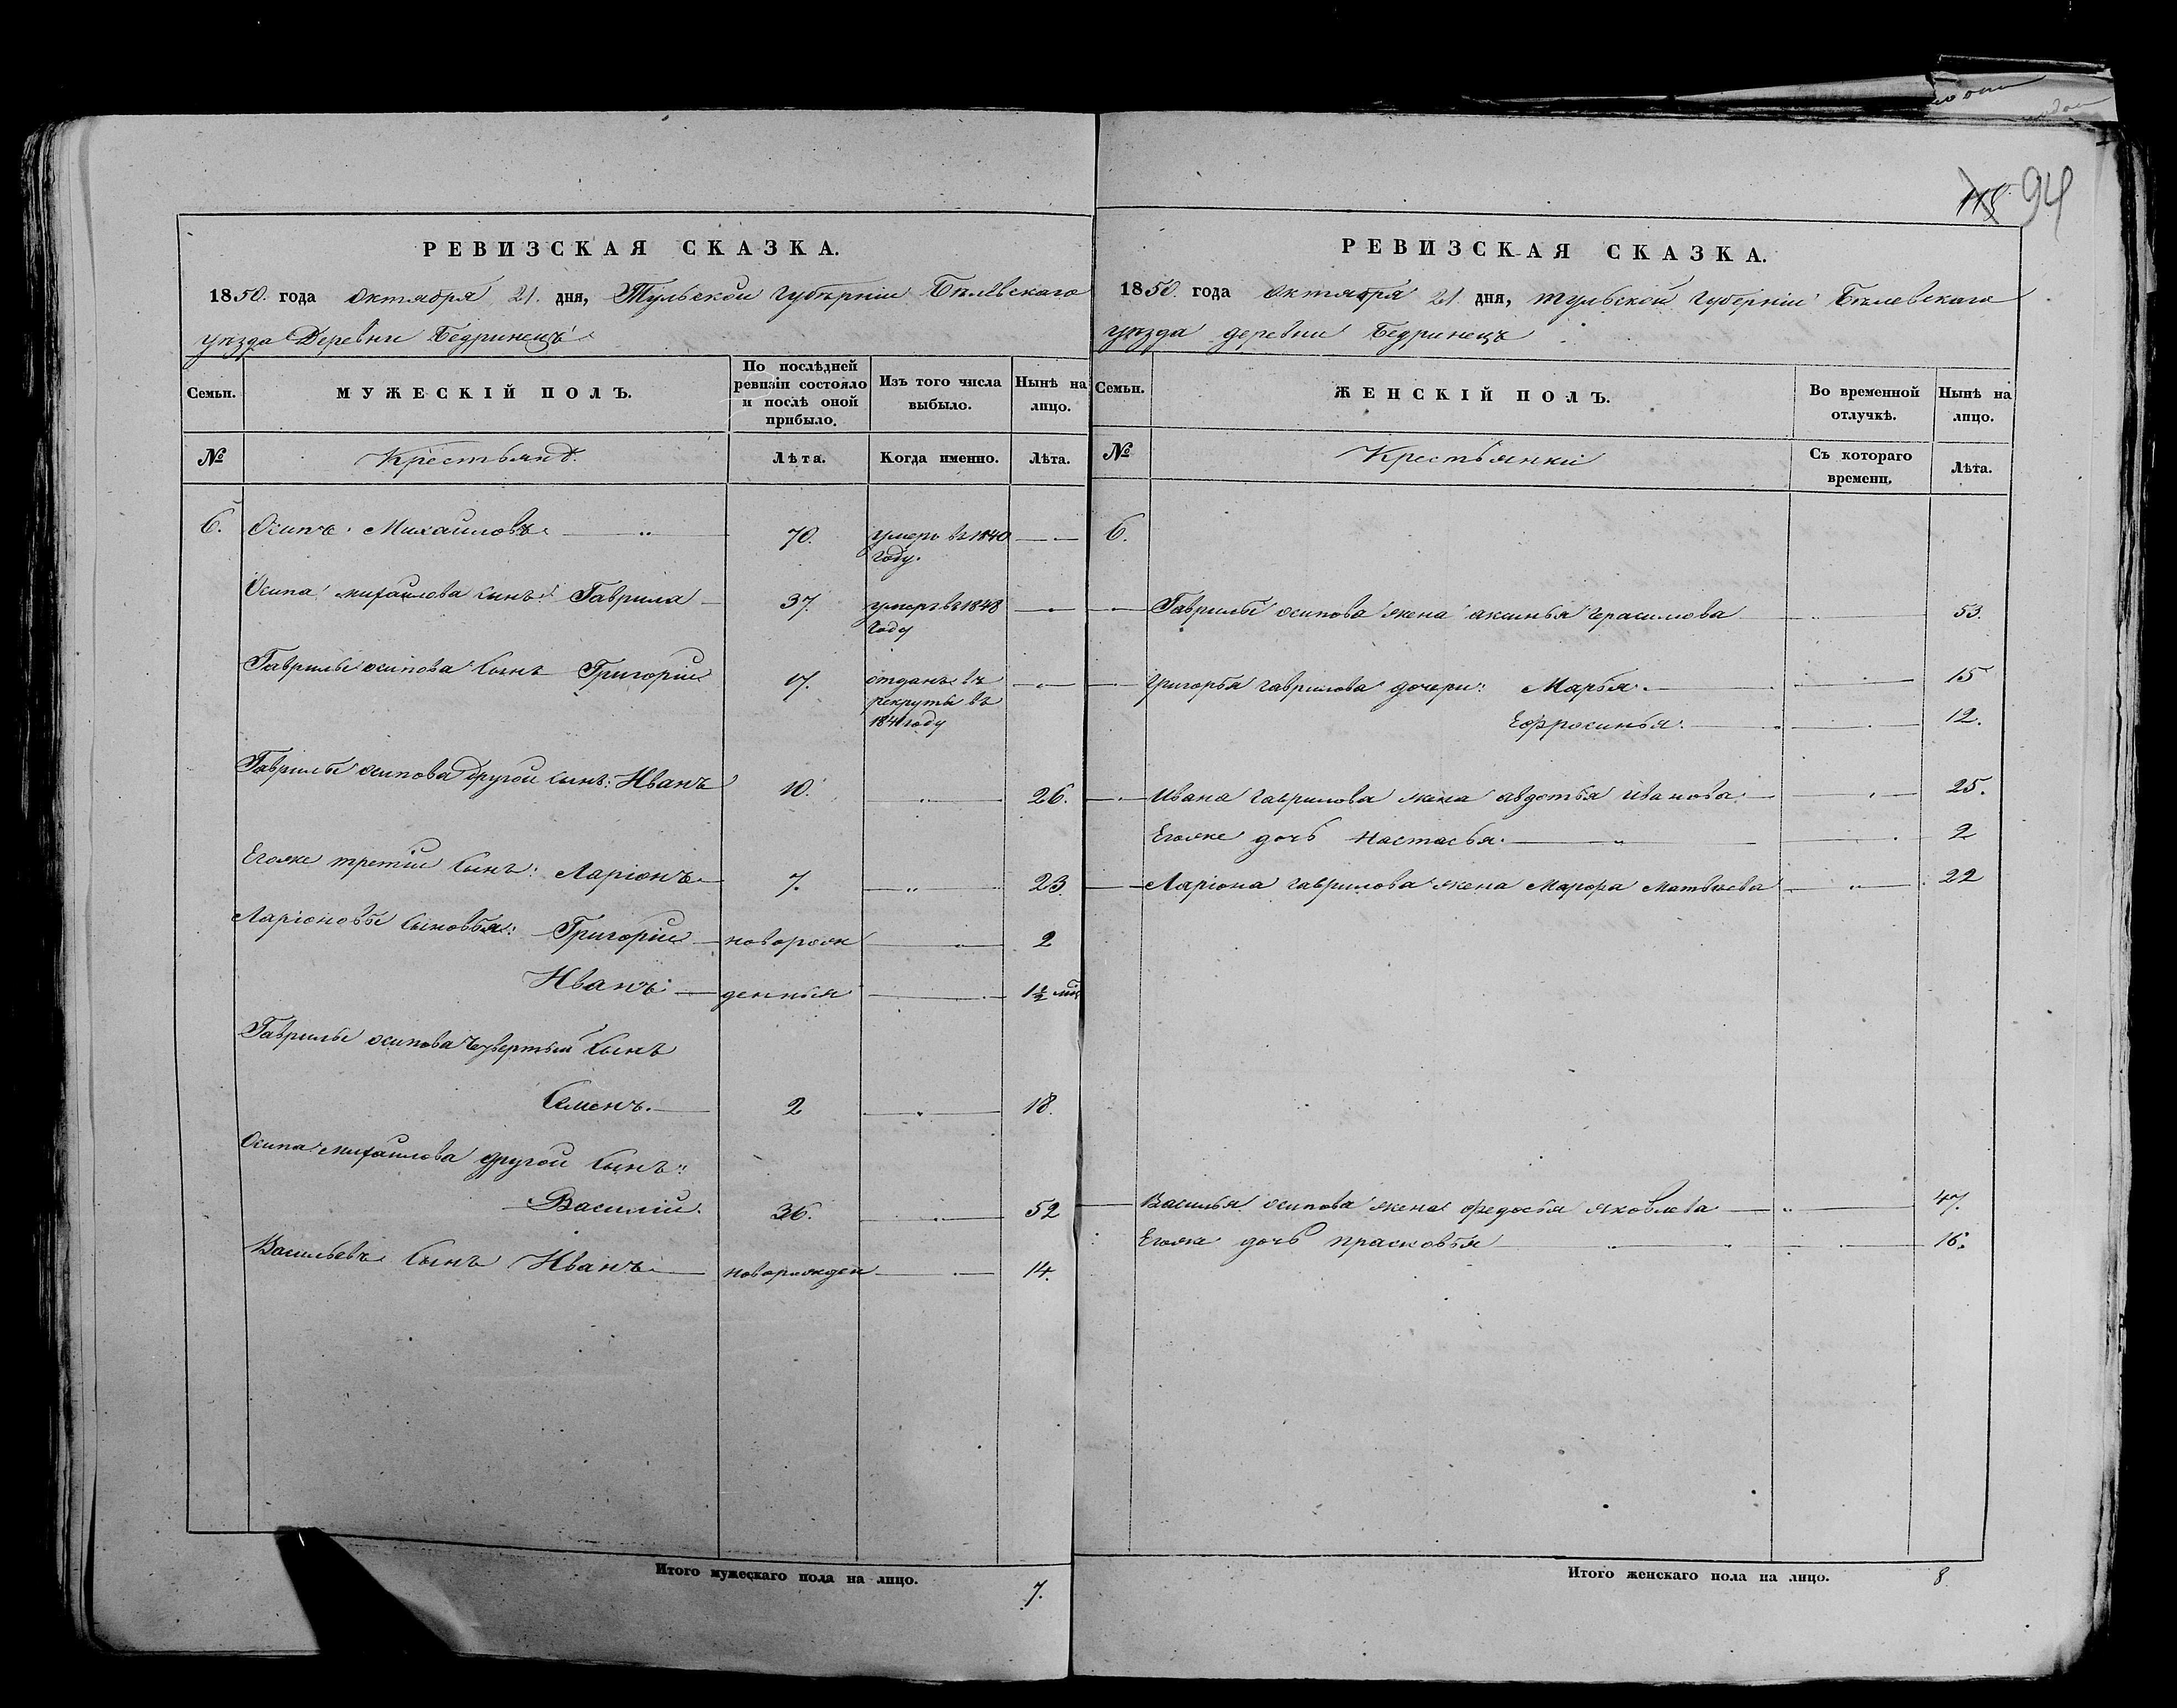 118 94
РЕВИЗСКАЯ СКАЗКА.
1850. года Октября 21. дня, Тульской Губѣрніи Бѣлѣвскаго
уѣзда Деревни Бедринецъ
Семьи.
МУЖЕСКІЙ ПОЛЪ.
По послѣдней ревизіи состояло и послѣ оной прибыло.
Изъ того числа выбыло.
Нынѣ на лицо.
№
Крестьянѣ.
Лѣта.
Когда именно.
Лѣта.
6. Осипъ Михаиловъ 70. умеръ въ 1840
году.
Осипа михаилова сынъ: Гаврила 37. умеръ въ 1848
году
Гаврилы осипова сынъ Григоріи 17. отданъ въ
рекруты въ
1841 году
Гаврилы осипова другои сынъ: Иванъ 10. 26.
Егоже третіи сынъ: Ларіонъ 7. 23.
Ларіоновы сыновья: Григоріи новорож 2
Иванъ денныя 1½ мѣ
Гаврилы осипова четвертый сынъ
Семенъ. 2 18.
Осипа михаилова другои сынъ:
Василіи. 36. 52
Васильевъ сынъ Иванъ новорожден 14.
Итого мужескаго пола на лицо. 7.
РЕВИЗСКАЯ СКАЗКА.
1850 года Октября 21. дня, тульской Губерніи Бѣлевскаго
уѣзда деревни Бедринецъ
Семьи.
ЖЕНСКІЙ ПОЛЪ.
Во временной отлучкѣ.
Нынѣ на лицо.
№
Крестьянки
Съ котораго времени.
Лѣта.
6.
Гаврилы осипова жена аксинья Герасимова 53.
Григорья гаврилова дочери: Марья. 15
Ефросинья. 12.
Ивана Гаврилова жена авдотья иванова 25.
Егоже дочь Настасья. 2
Ларіона гаврилова жена Марфа Матвѣева 22
Василья осипова жена федосья яковлева 47.
Егоже дочь прасковья 16.
Итого женскаго пола на лицо. 8